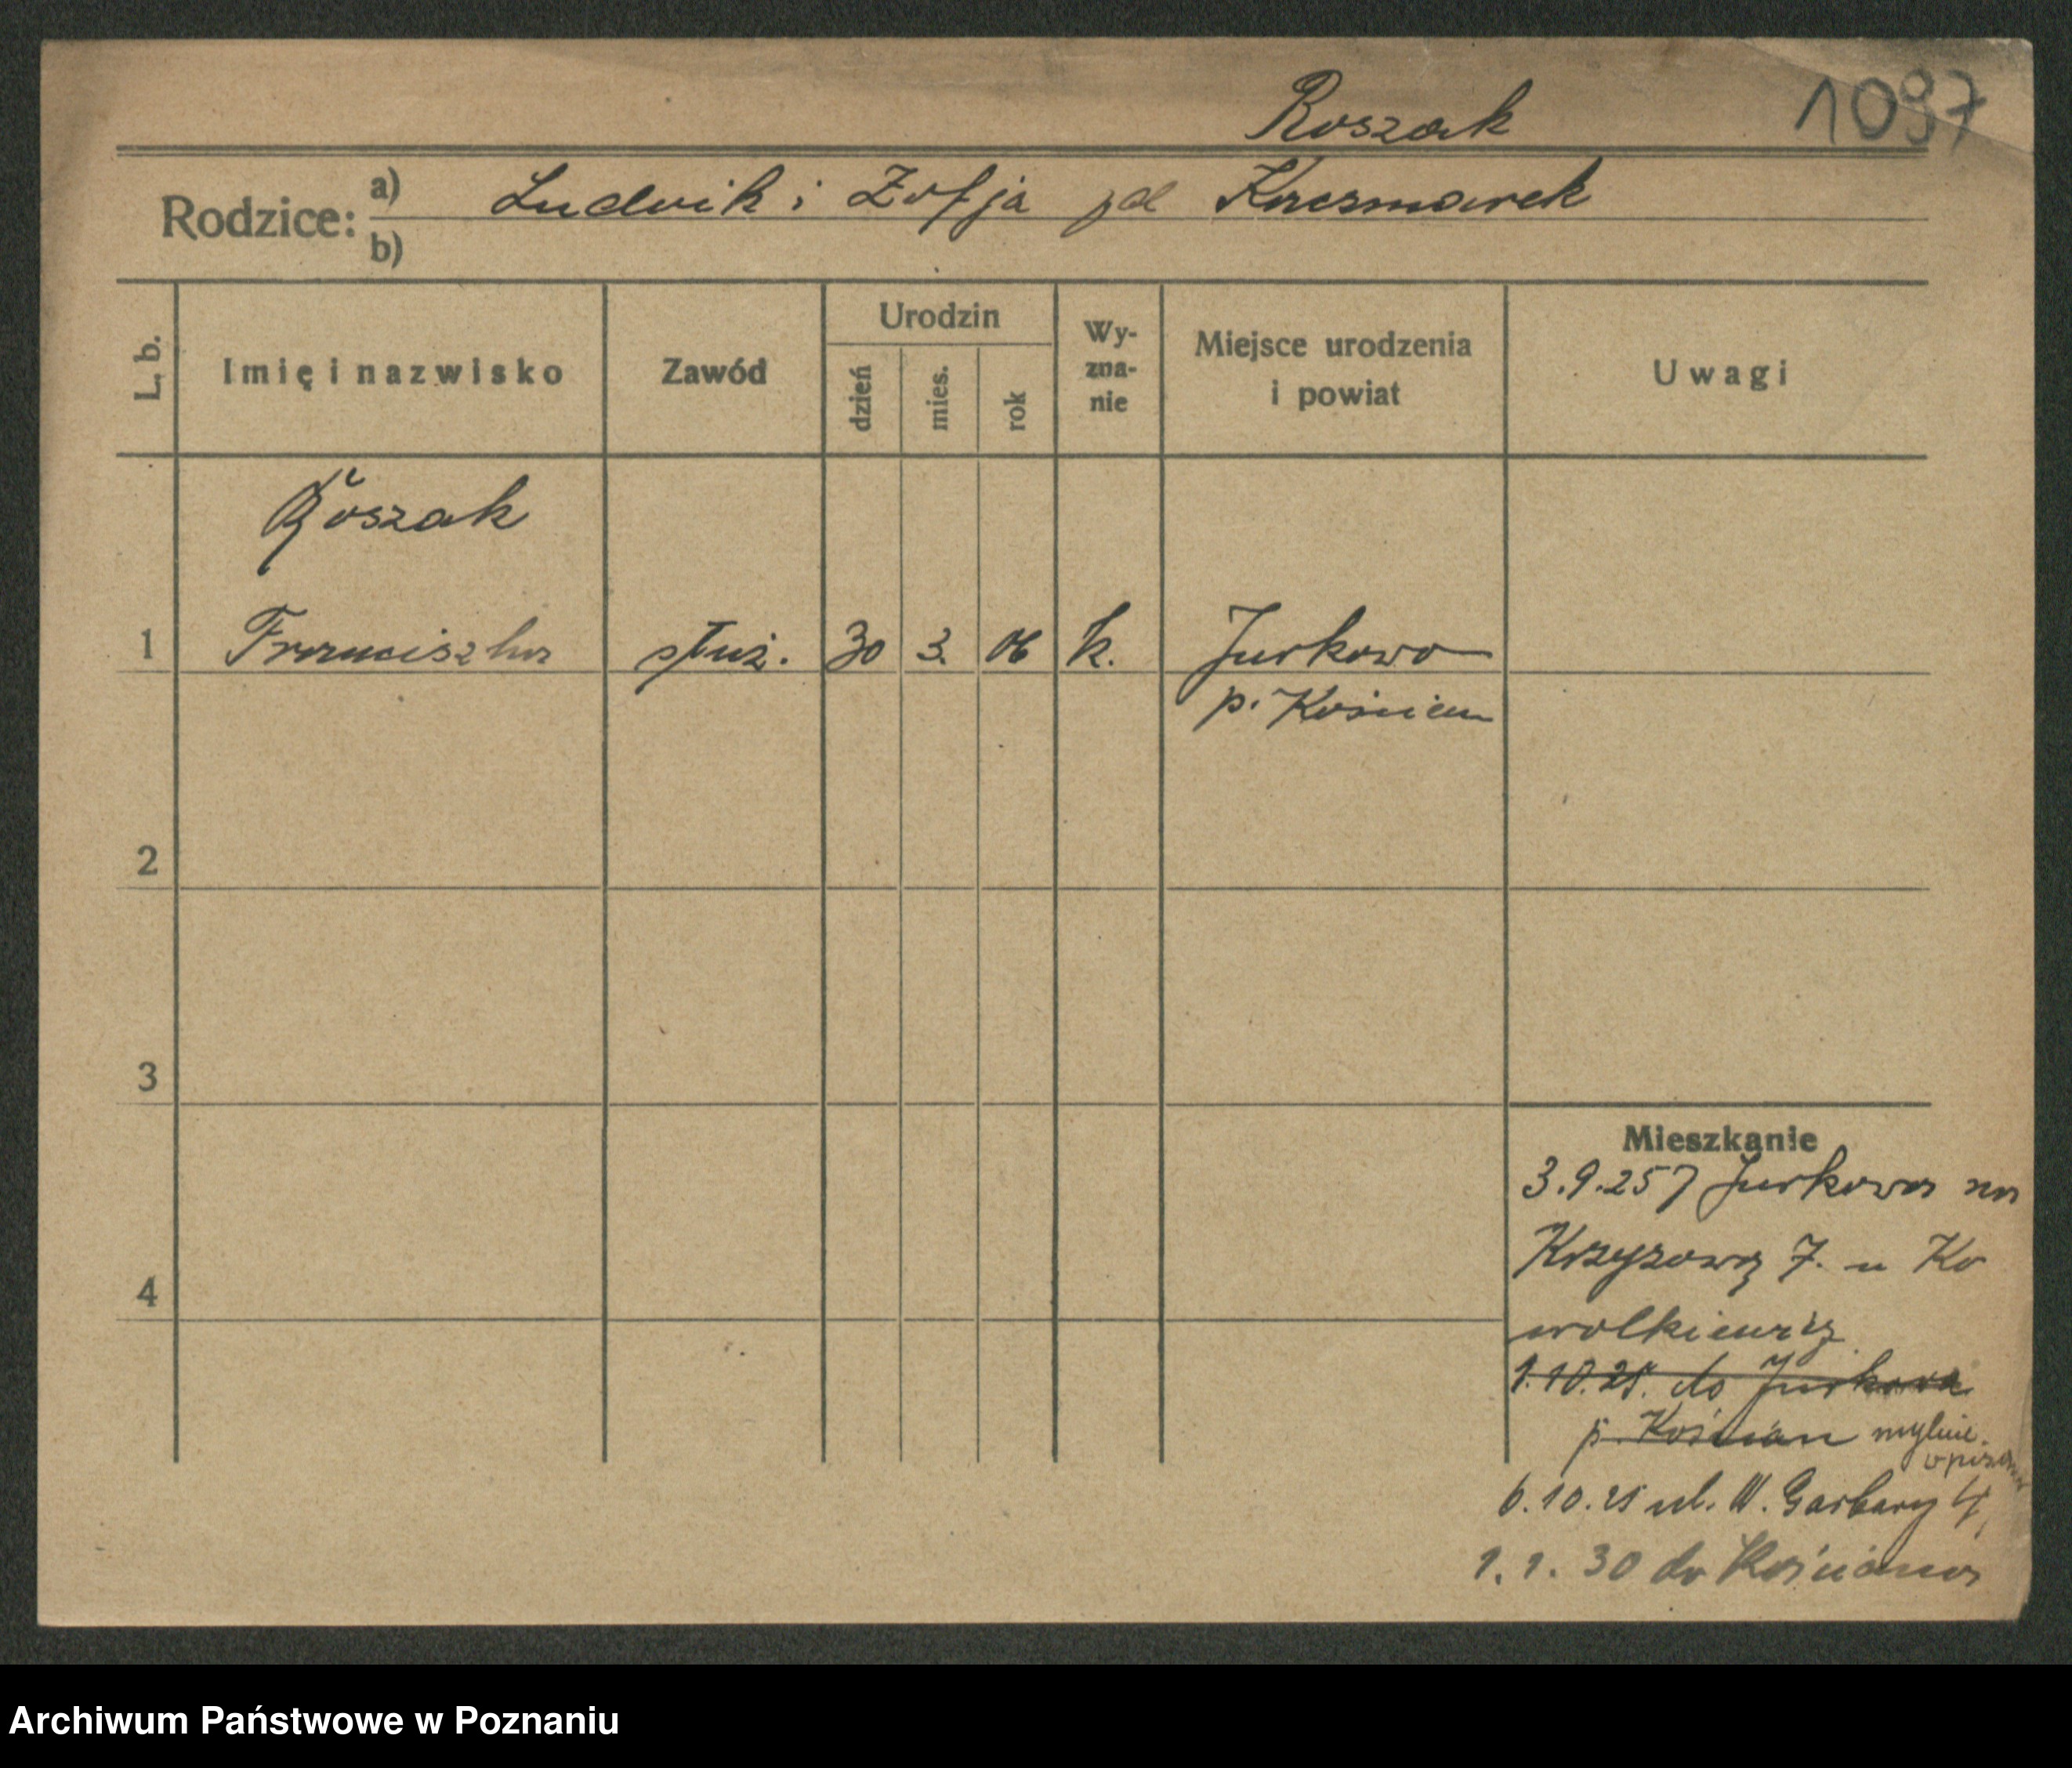 Roszak 1097
Rodzice: a) Ludwik i Zofja zd Kaczmarek
b)
L. b. Imię i nazwisko Zawód Urodzin dzień mies. rok Wy-zna-nie Miejsce urodzenia i powiat Uwagi
Roszak
1 Franciszka służ. 30 3. 06 k. Jurkowo
p. Kościan
2
3
4
Mieszkanie
3.9.25 z Jurkowa na
Krzyzową 7. u Ko
walkiewicz
1.10.25. do Jurkowa
p. Kościan mylnie
wpisano
6.10.25 ul. W. Garbary 4,
1.1.30 do Kościana
Archiwum Państwowe w Poznaniu